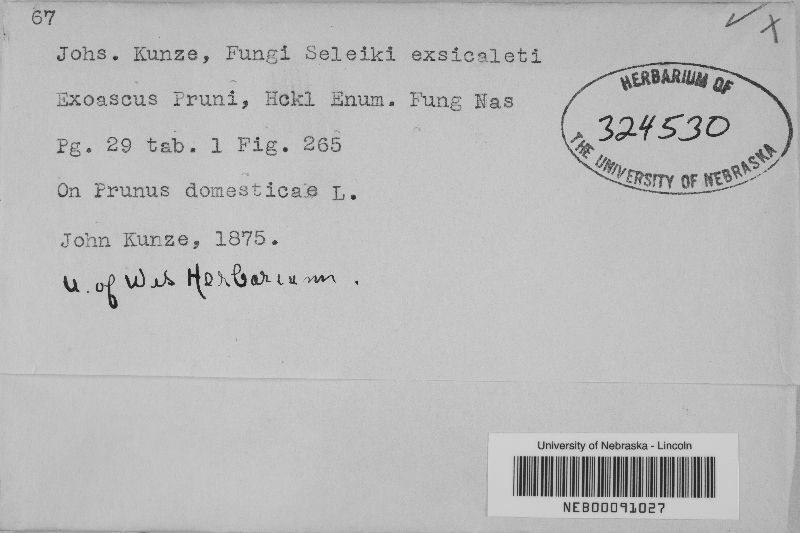 67
Johs. Kunze, Fungi Seleiki exsicaleti
Exoascus Pruni, Hckl Enum. Fung Nas
Pg. 29 tab. 1 Fig. 265
On Prunus domesticae L.
John Kunze, 1875.
U. of Wis Herbarium.
HERBARIUM OF
324530
THE UNIVERSITY OF NEBRASKA
University of Nebraska - Lincoln
NEB00091027